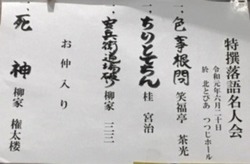 特撰落語名人会
令和元年六月二十日
於 北とぴあ つつじホール
一、色事根問 笑福亭 茶光
一、ちりとてちん 桂 宮治
一、宮兵衛道場破 柳家 三三
お仲入り
一、死神 柳家 権太楼